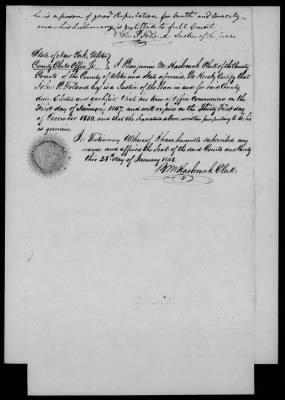 he is a person of good Reputation for truth and Veracity
and his testimony is entitled to full Credit.
John P. Foland Justice of the Peace
State of New York, Ulster
County Clerks Office Ss. I Benjamin M. Hasbrouck Clerk of the County
Courts of the County of Ulster and State aforesaid, Do Hereby Certify that
John P. Foland Esqr is a Justice of the Peace in and for said County
duly Elected and qualified that his term of Office Commenced on the
First day of January 1847, and will expire on the Thirty First day
of December 1850, and that the Signature above written purporting to be his
is genuine.
In Testimony Whereof I have hereunto subscribed my
name and affixed the Seal of the said Courts and County
this 28th day of January 1848.
B M Hasbrouck Clerk